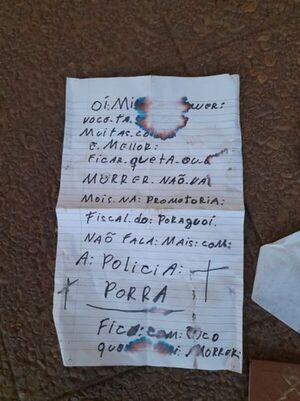 OÍ: Mi WER:
VOCO TA
MUITAS CO
E. MELLOR:
FICAR QUETA OU
MORRER NÃO VA
MOIS NA: PROMOTORIA:
FISCAL DO: PORAGUAÍ.
NÃO FALA: MAIS: COM:
A: POLICIA:
PORRA
FICA: COM: CO
MORRER: